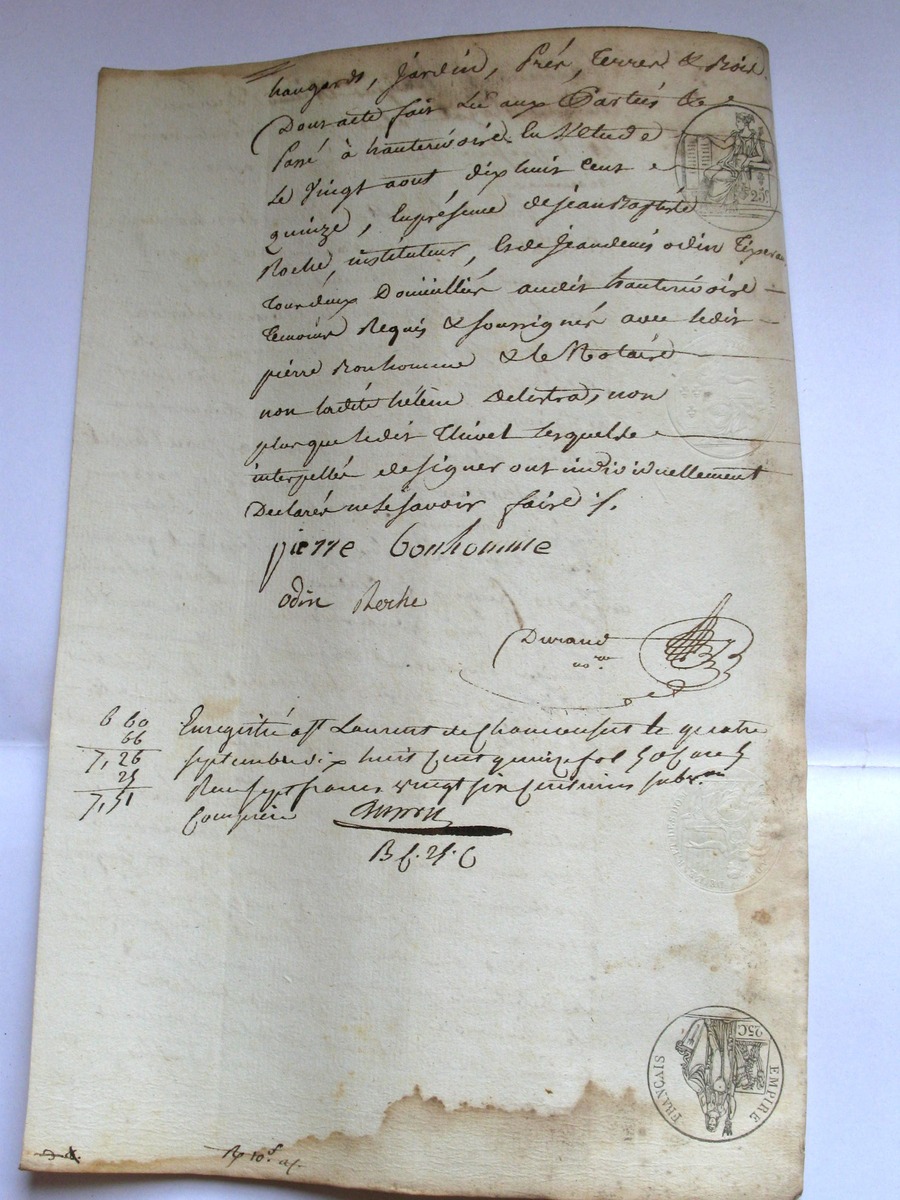 hangards, jardin, Prés, Terres & Bois.
Dont acte fait Lu aux Parties &
Passé à hauterivoire En l'Etude
Le Vingt aout dix huit cent
quinze, En présence de jean Baptiste
Roche, instituteur, & de Jean denis odin
tous deux Domiciliés audit hauterivoire
temoins Requis & soussignés avec ledit
pierre Bonhomme & le Notaire
non ladite hélène Delestra, non
plus que ledit Thivel lesquels de
interpellés de signer ont individuellement
Declarés ne le savoir faire ./.
pierre bonhomme
odin Roche
Durand
no.re
6 60
66
7,26
25
7,51
Enregistré a St Laurent de Chamousset le quatre
septembre dix huit cent quinze fol
Reçu sept francs vingt six centimes subv.on
Comprise
25 C
EMPIRE
FRANÇAIS
25C